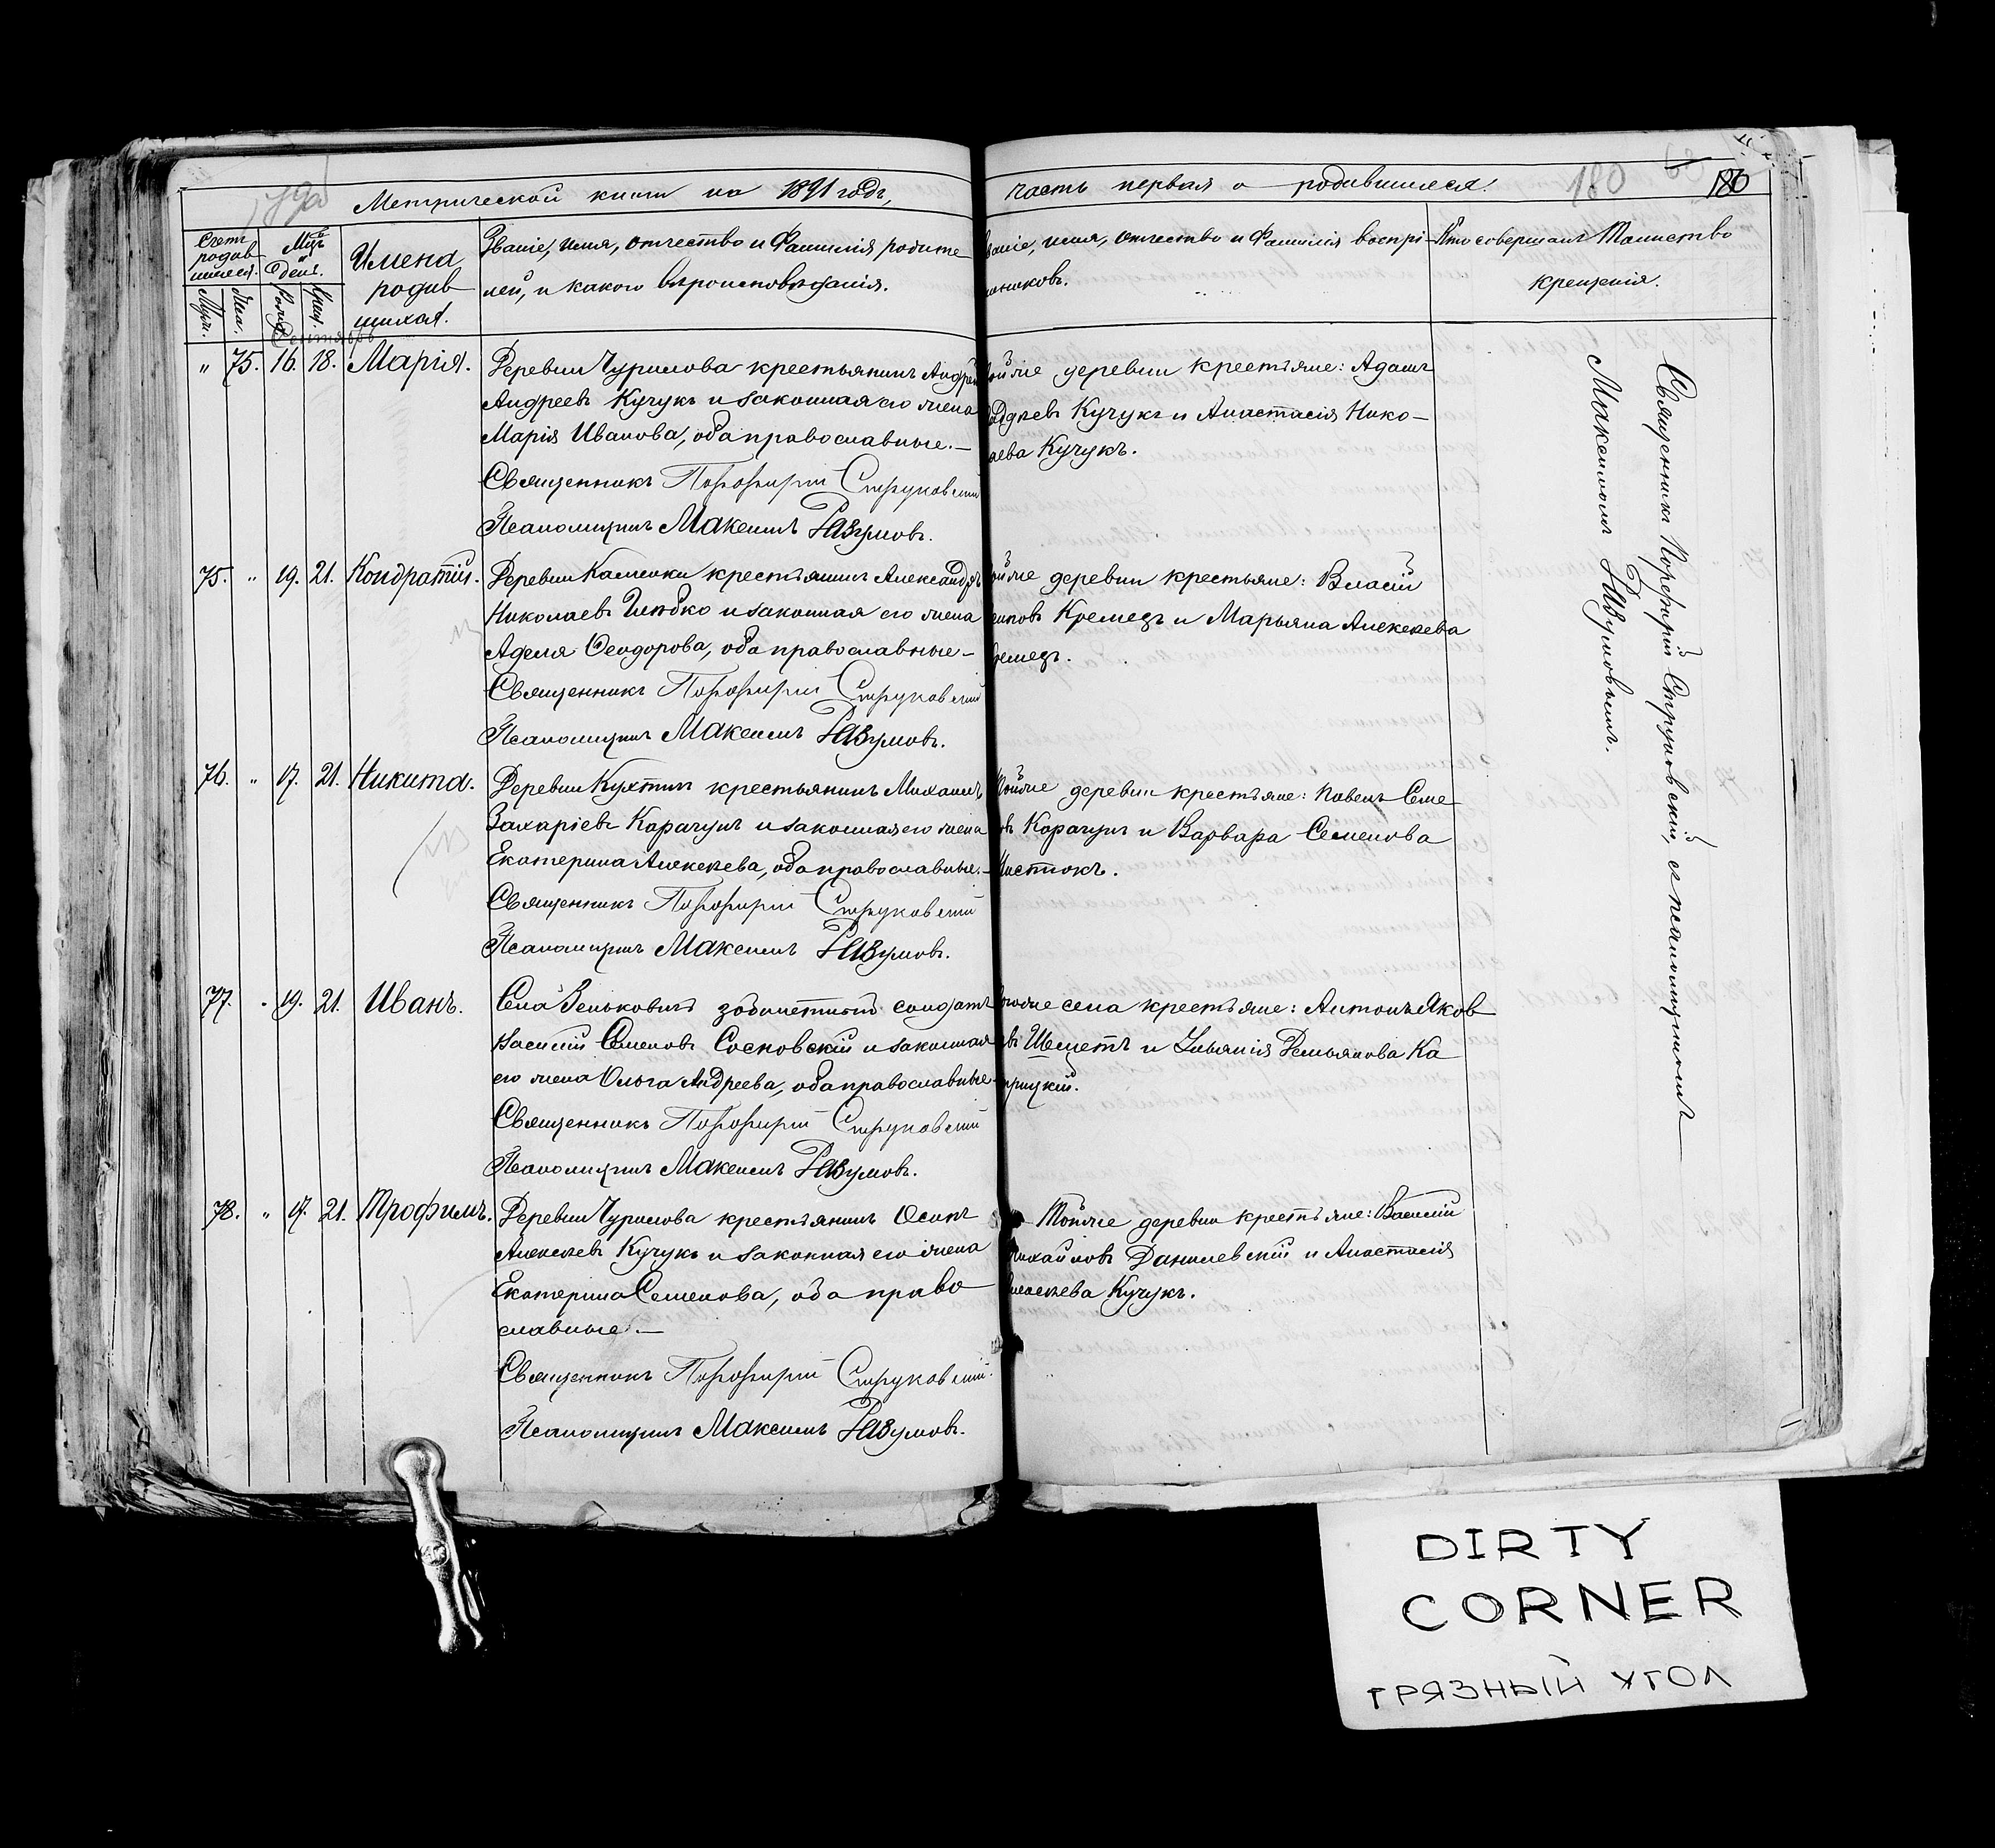 Метрической книги на 1891 годъ,
часть первая о родившихся.
180
180
Счетъ родив шихся.
Мцъ и день.
Имена родив шихся.
Званіе, имя, отчество и фамилія родите
лей, и какого вѣроисповѣданія.
званіе, имя, отчество и фамилія воспрі-
емниковъ.
Кто совершалъ Таинство
крещенія.
Муж. Жен. Рожд. Крещ.
Сентябрь
" 75. 16. 18. Марія.
Деревни Чурилова крестьянинъ Андрей
Андреевъ Кучукъ и законная его жена
Марія Иванова, оба православные.—
Священникъ Порфирій Струковскій
Псаломщикъ Максимъ Разумовъ.
Тойже деревни крестьяне: Адамъ
Кучукъ и Анастасія Нико-
лаева Кучукъ.
75. " 19. 21. Кондратій.
Деревни Каменки крестьянинъ Александръ
Николаевъ и законная его жена
Аделя Ѳеодорова, оба православные—
Священникъ Порфирій Струковскій
Псаломщикъ Максимъ Разумовъ.
тойже деревни крестьяне: Власій
Кремезъ и Марьяна Алексѣева
Кремезъ.
76. " 17. 21. Никита.
Деревни Кухтичъ крестьянинъ Михаилъ
Захаріевъ Карачунъ и законная его жена
Екатерина Алексѣева, оба православные.—
Священникъ Порфирій Струковскій
Псаломщикъ Максимъ Разумовъ.
Тойже деревни крестьяне: Павелъ Семе-
овъ Карачунъ и Варвара Семенова
77. " 19. 21. Иванъ.
Села Зеньковичъ солдатъ
Василій Семеновъ Сосновскій и законная
его жена Ольга Андреева, оба православные
Священникъ Порфирій Струковскій
Псаломщикъ Максимъ Разумовъ.
тогоже села крестьяне: Антонъ Яков
евъ Шеметъ и Ульянія Демьянова Ка
78. " 17. 21. Трофимъ.
Деревни Чурилова крестьянинъ Осипъ
Алексѣевъ Кучукъ и законная его жена
Екатерина Семенова, оба право
славные.—
Священникъ Порфирій Струковскій.
Псаломщикъ Максимъ Разумовъ.
Тойже деревни крестьяне: Василій
Михайловъ Данилевскій и Анастасія
Алексѣева Кучукъ.
Священникъ Порфирій Струковскій, съ псаломщикомъ
Максимомъ Разумовымъ.
DIRTY
CORNER
ГРЯЗНЫЙ УГОЛ